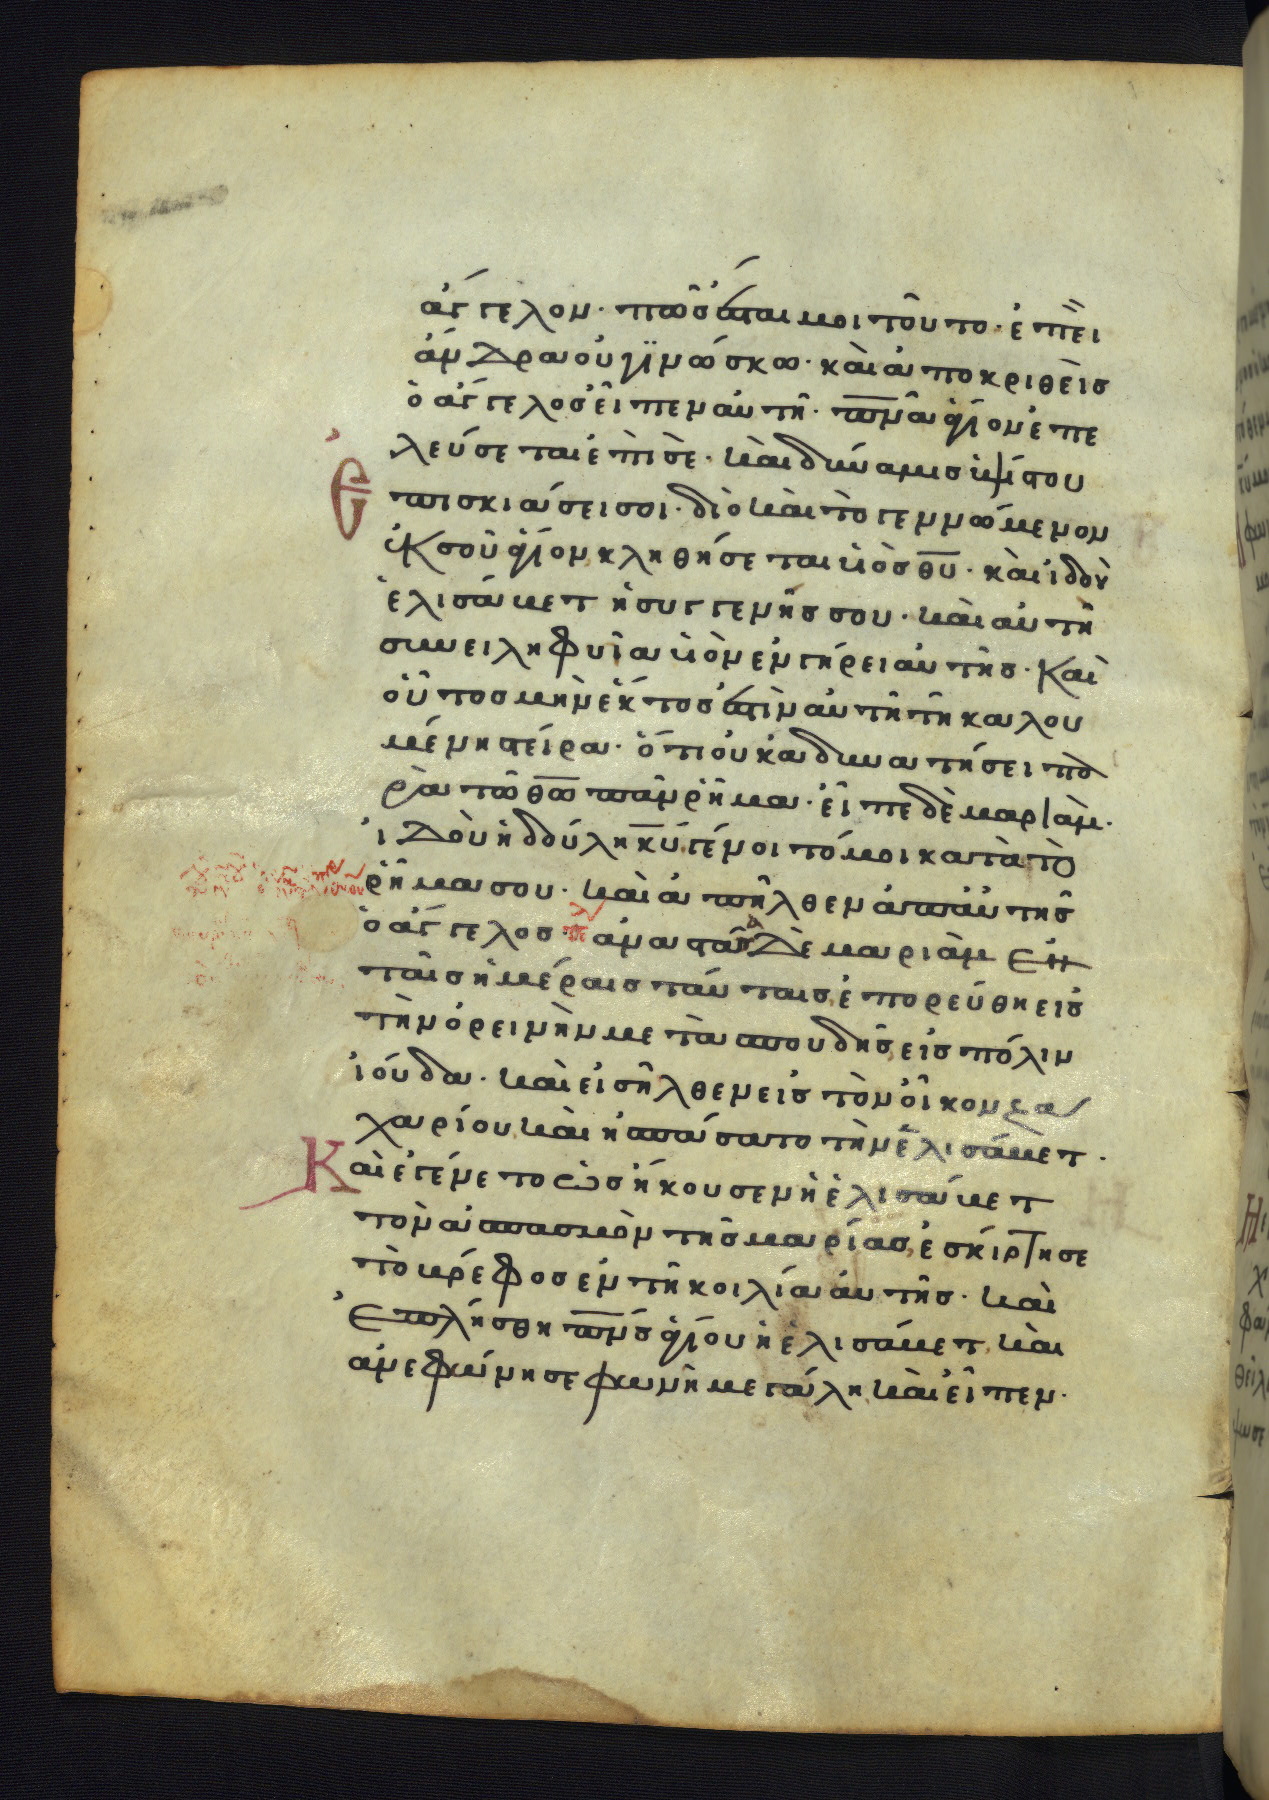 ἄγγελον· πῶς ἔσται μοι τοῦτο· ἐπεὶ
ἄνδρα οὐ γϊνώσκω· καὶ ἀποκριθεὶς
ὁ ἄγγελος εἶπεν αὐτῆ· π̅ν̅α ἅγϊον ἐπε
λεύσεται ἐπὶ σὲ· καὶ δύναμις ὑψίστου
Ἐπισκιάσει σοι· διὸ καὶ τὸ γεννώμενον
ἐκ σοῦ ἅγϊον κληθήσεται υἱὸς θ̅υ̅· καὶ ἰδοὺ
ἐλισάβετ ἡ συγγενής σου· καὶ αὐτὴ
συνειληφυῖα υἱὸν ἐν γήρει αὐτῆς· καὶ
οὗτος μὴν ἕκτος ἐστὶν αὐτῆ τῆ καλου
μένη στείρα· ὅτι οὐκ ἀδυνατήσει πα
ρὰ τῶ θ̅ω̅ πᾶν ῥῆμα· εἶπε δὲ μαριὰμ·
ἰδοὺ ἡ δούλη κ̅υ̅ γένοιτό μοι κατὰ τὸ
ῥῆμα σου· καὶ ἀπῆλθεν ἀπ' αὐτῆς
ὁ ἄγγελος· ἀναστᾶσα δὲ μαριὰμ ἐν
ταῖς ἡμέραις ταύταις, ἐπορεύθη εἰς
τὴν ὀρεινὴν μετὰ σπουδῆς εἰς πόλιν
ἰούδα· καὶ εἰσῆλθεν εἰς τὸν οἶκον ζα
χαρίου καὶ ἠσπάσατο τὴν ἐλισάβετ·
Καὶ ἐγένετο ὡς ἤκουσεν ἡ ἐλισάβετ
τὸν ἀσπασμὸν τῆς μαρίας, ἐσκίρτησε
τὸ βρέφος ἐν τῆ κοιλία αὐτῆς· καὶ
ἐπλήσθη π̅ν̅ς ἁγίου ἡ ἐλισάβετ, καὶ
ἀνεφώνησε φωνῆ μεγάλη καὶ εἶπεν·